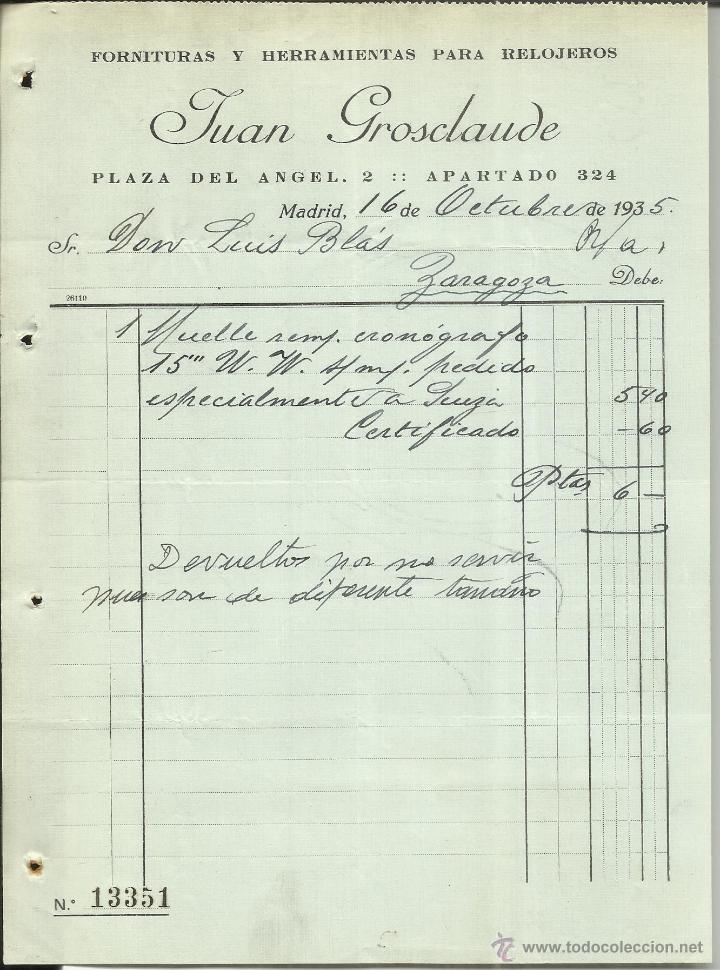 FORNITURAS Y HERRAMIENTAS PARA RELOJEROS
Juan Grosclaude
PLAZA DEL ANGEL. 2 :: APARTADO 324
Madrid, 16 de Octubre de 1935.
Sr. Don Luis Blás
Zaragoza Debe:
26110
1 Muelle remp. cronógrafo
15''' W. W. s/m/. pedido
especialmente a Suiza 5 40
Certificado - 60
Ptas 6 -
Devueltos por no servir
pues son de diferente tamaño
N.° 13351
www.todocoleccion.net